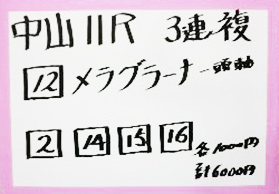 中山11R 3連複
12 メラグラーナ 一頭軸
2 14 15 16 各1000円
計6000円